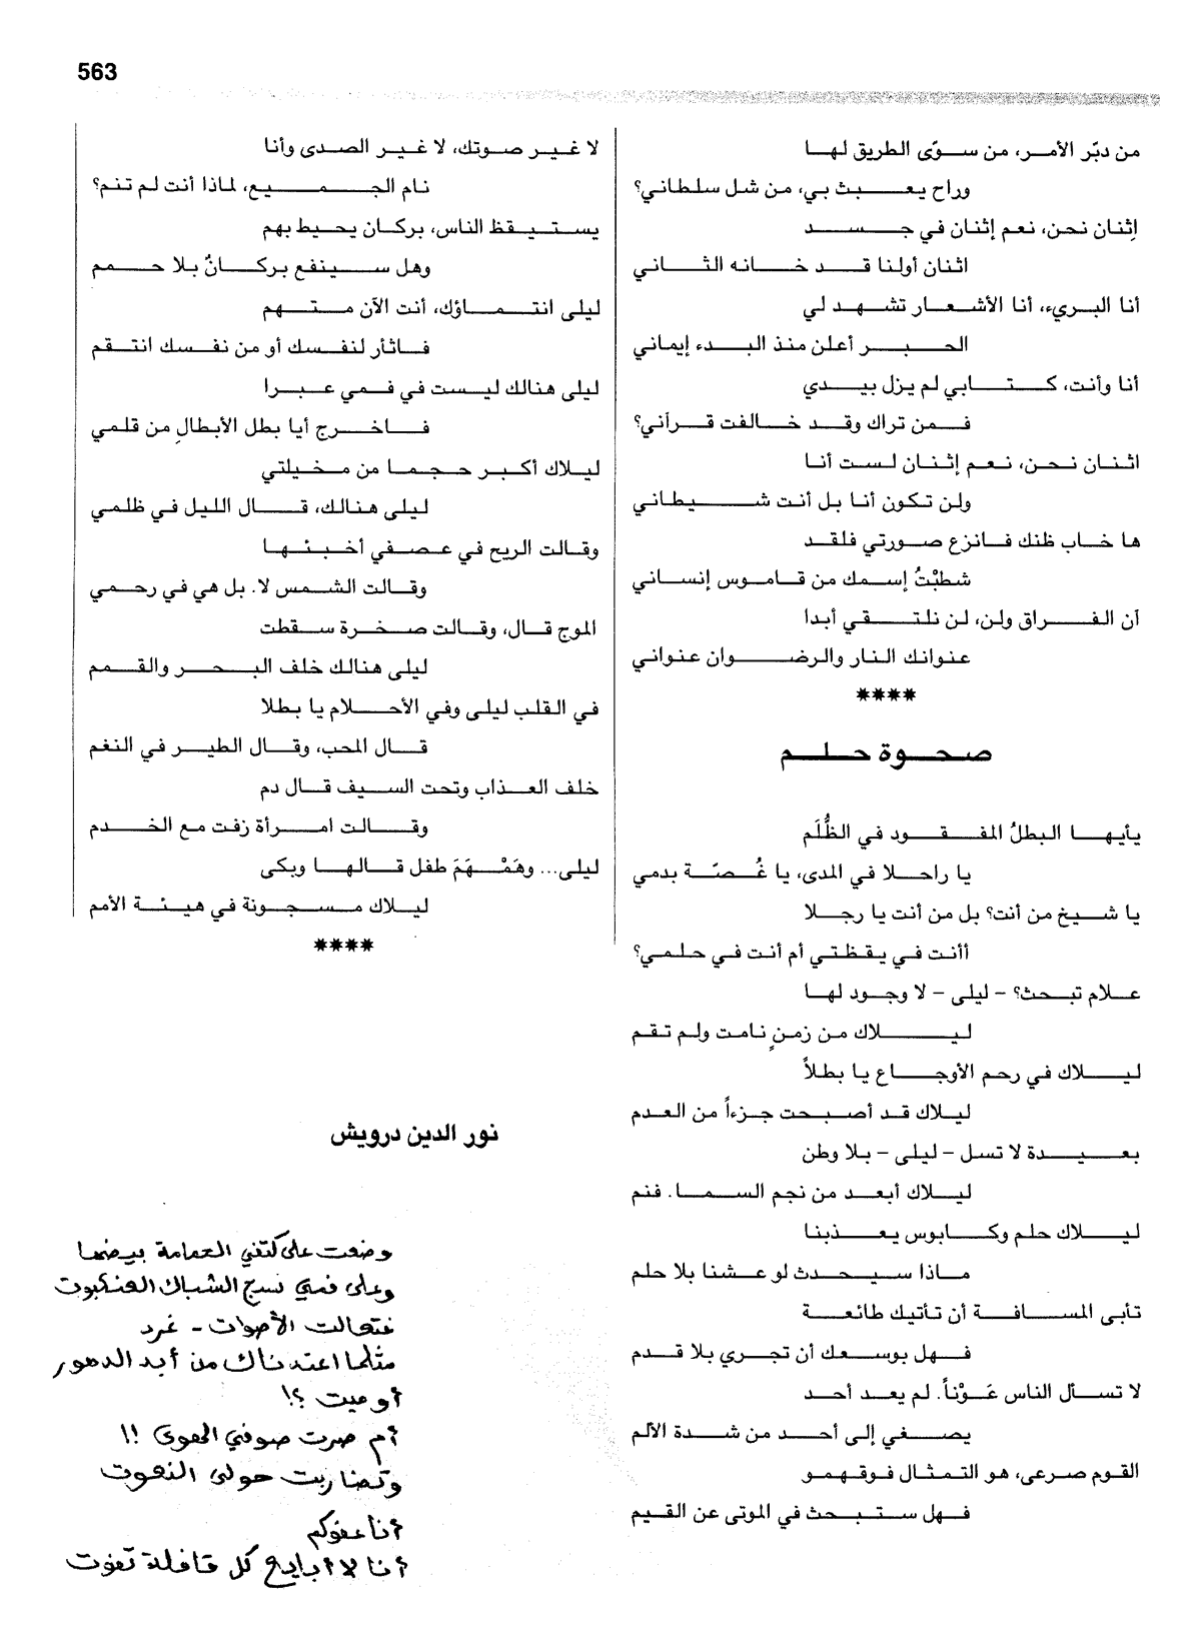 563
من دبّر الأمر، من سوّى الطريق لها
وراح يعبث بي، من شل سلطاني؟
إثنان نحن، نعم إثنان في جسد
اثنان أولنا قد خانه الثاني
أنا البريء، أنا الأشعار تشهد لي
الحبر أعلن منذ البدء إيماني
أنا وأنت، كتابي لم يزل بيدي
فمن تراك وقد خالفت قرآني؟
اثنان نحن، نعم إثنان لست أنا
ولن تكون أنا بل أنت شيطاني
ها خاب ظنك فانزع صورتي فلقد
شطبْتُ إسمك من قاموس إنساني
آن الفراق ولن، لن نلتقي أبدا
عنوانك النار والرضوان عنواني
****
صحوة حلم
يأيها البطلُ المفقود في الظُّلَم
يا راحلا في المدى، يا غُصّة بدمي
يا شيخ من أنت؟ بل من أنت يا رجلا
أأنت في يقظتي أم أنت في حلمي؟
علام تبحث؟ - ليلى - لا وجود لها
ليلاك من زمنٍ نامت ولم تقم
ليلاك في رحم الأوجاع يا بطلاً
ليلاك قد أصبحت جزءاً من العدم
بعيدة لا تسل - ليلى - بلا وطن
ليلاك أبعد من نجم السما. فنم
ليلاك حلم وكابوس يعذبنا
ماذا سيحدث لو عشنا بلا حلم
تأبى المسافة أن تأتيك طائعة
فهل بوسعك أن تجري بلا قدم
لا تسأل الناس عَوْناً. لم يعد أحد
يصغي إلى أحد من شدة الألم
القوم صرعى، هو التمثال فوقهمو
فهل ستبحث في الموتى عن القيم
لا غير صوتك، لا غير الصدى وأنا
نام الجميع، لماذا أنت لم تنم؟
يستيقظ الناس، بركان يحيط بهم
وهل سينفع بركانٌ بلا حمم
ليلى انتماؤك، أنت الآن متهم
فاثأر لنفسك أو من نفسك انتقم
ليلى هنالك ليست في فمي عبرا
فاخرج أيا بطل الأبطالِ من قلمي
ليلاك أكبر حجما من مخيلتي
ليلى هنالك، قال الليل في ظلمي
وقالت الريح في عصفي أخبئها
وقالت الشمس لا. بل هي في رحمي
الموج قال، وقالت صخرة سقطت
ليلى هنالك خلف البحر والقمم
في القلب ليلى وفي الأحلام يا بطلا
قال المحب، وقال الطير في النغم
خلف العذاب وتحت السيف قال دم
وقالت امرأة زفت مع الخدم
ليلى... وهَمْهَمَ طفل قالها وبكى
ليلاك مسجونة في هيئة الأمم
****
نور الدين درويش
وضعت على كتفي الحمامة بيضها
وعلى فمي نسج الشباك العنكبوت
فتعالت الأصوات - غرد
مثلما اعتدناك من أبد الدهور
أو ميت ؟!
أم صرت صوفي الهوى !!
وتضاربت حولي النعوت
أنا عفوكم
أنا لا أبايع كل قافلة تفوت